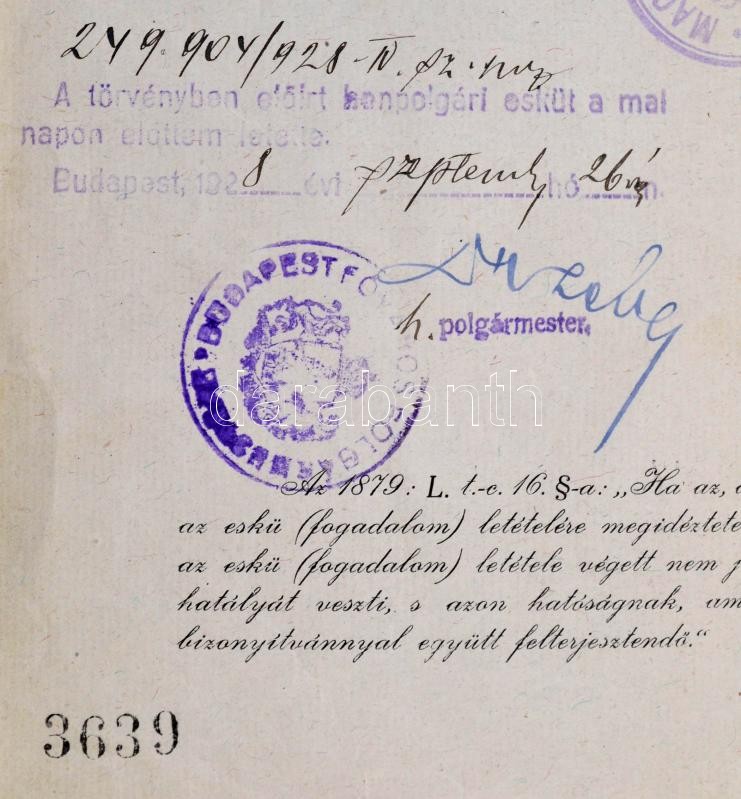 249.904/928-IV. sz.
MAG
A törvényben előirt honpolgári esküt a mai
napon előttem letette.
Budapest, 1928 évi szeptemb hó 26 n.
BUDAPEST FŐVÁROS POLGÁRMESTERE
h. polgármester.
darabanth
Az 1879: L. t.-c. 16. §-a: „Ha az,
az eskü (fogadalom) letételére megidéztete
az eskü (fogadalom) letétele végett nem j
hatályát veszti, s azon hatóságnak, am
bizonyítvánnyal együtt felterjesztendő.“
3639